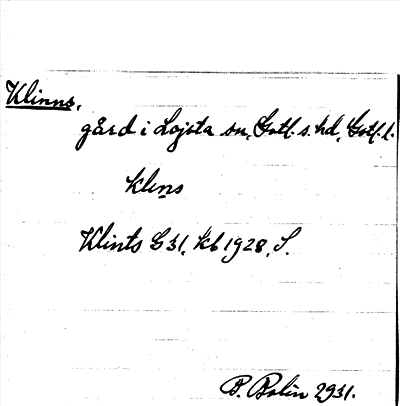 Klinns,
gård i Lojsta sn, Gotl. s. hd, Gotl. l.
klens
Klints G 31, kb 1928, S.
B. Bolin 2931.